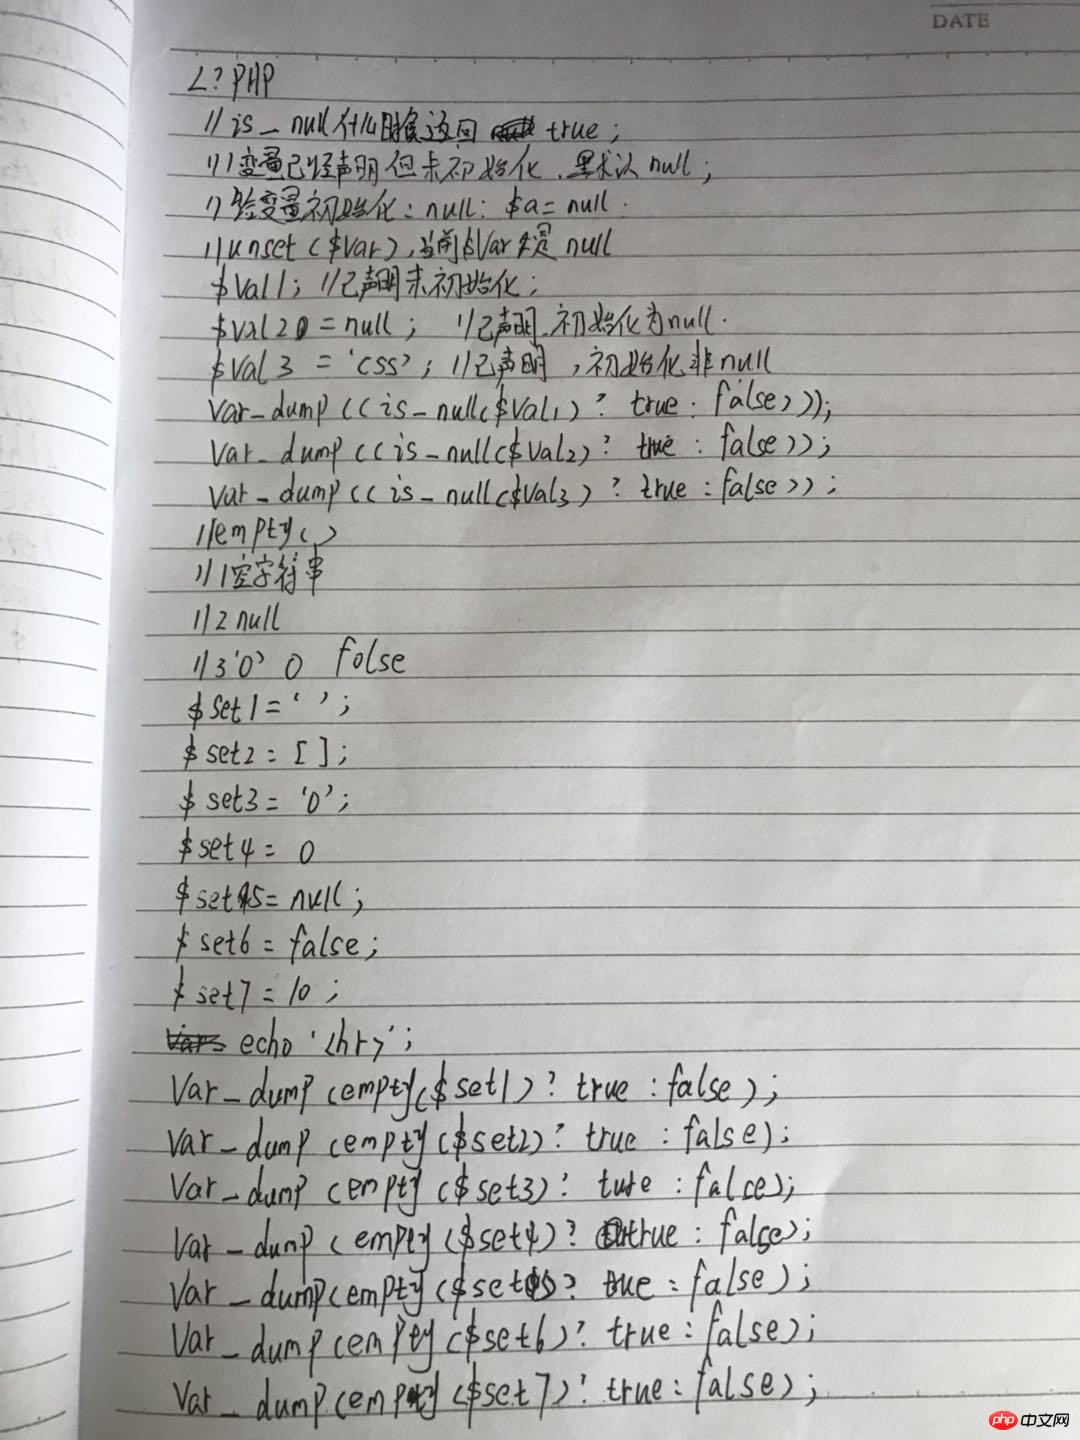 DATE
<?PHP
//is_null什么时候返回 true;
//1变量已经声明但未初始化.默认null;
//给变量初始化:null:$a=null.
//unset($var),当前$var是null
$Val1; //已声明未初始化;
$Val2=null; //已声明.初始化为null.
$Val3='css'; //已声明,初始化非null
Var_dump((is_null($Val1)? true:false)));
Var_dump((is_null($Val2)? true:false));
Var_dump((is_null($Val3)? true:false));
//empty()
//1空字符串
//2 null
//3'0' 0 folse
$set1=' ';
$set2=[];
$set3='0';
$set4=0
$set5=null;
$set6=false;
$set7=10;
echo '<hr>';
Var_dump(empty($set1)?true:false);
Var_dump(empty($set2)?true:false);
Var_dump(empty($set3)?ture:false);
Var_dump(empty($set4)?true:false);
Var_dump(empty($set5)?true:false);
Var_dump(empty($set6)?true:false);
Var_dump(empty($set7)?true:false);
php中文网